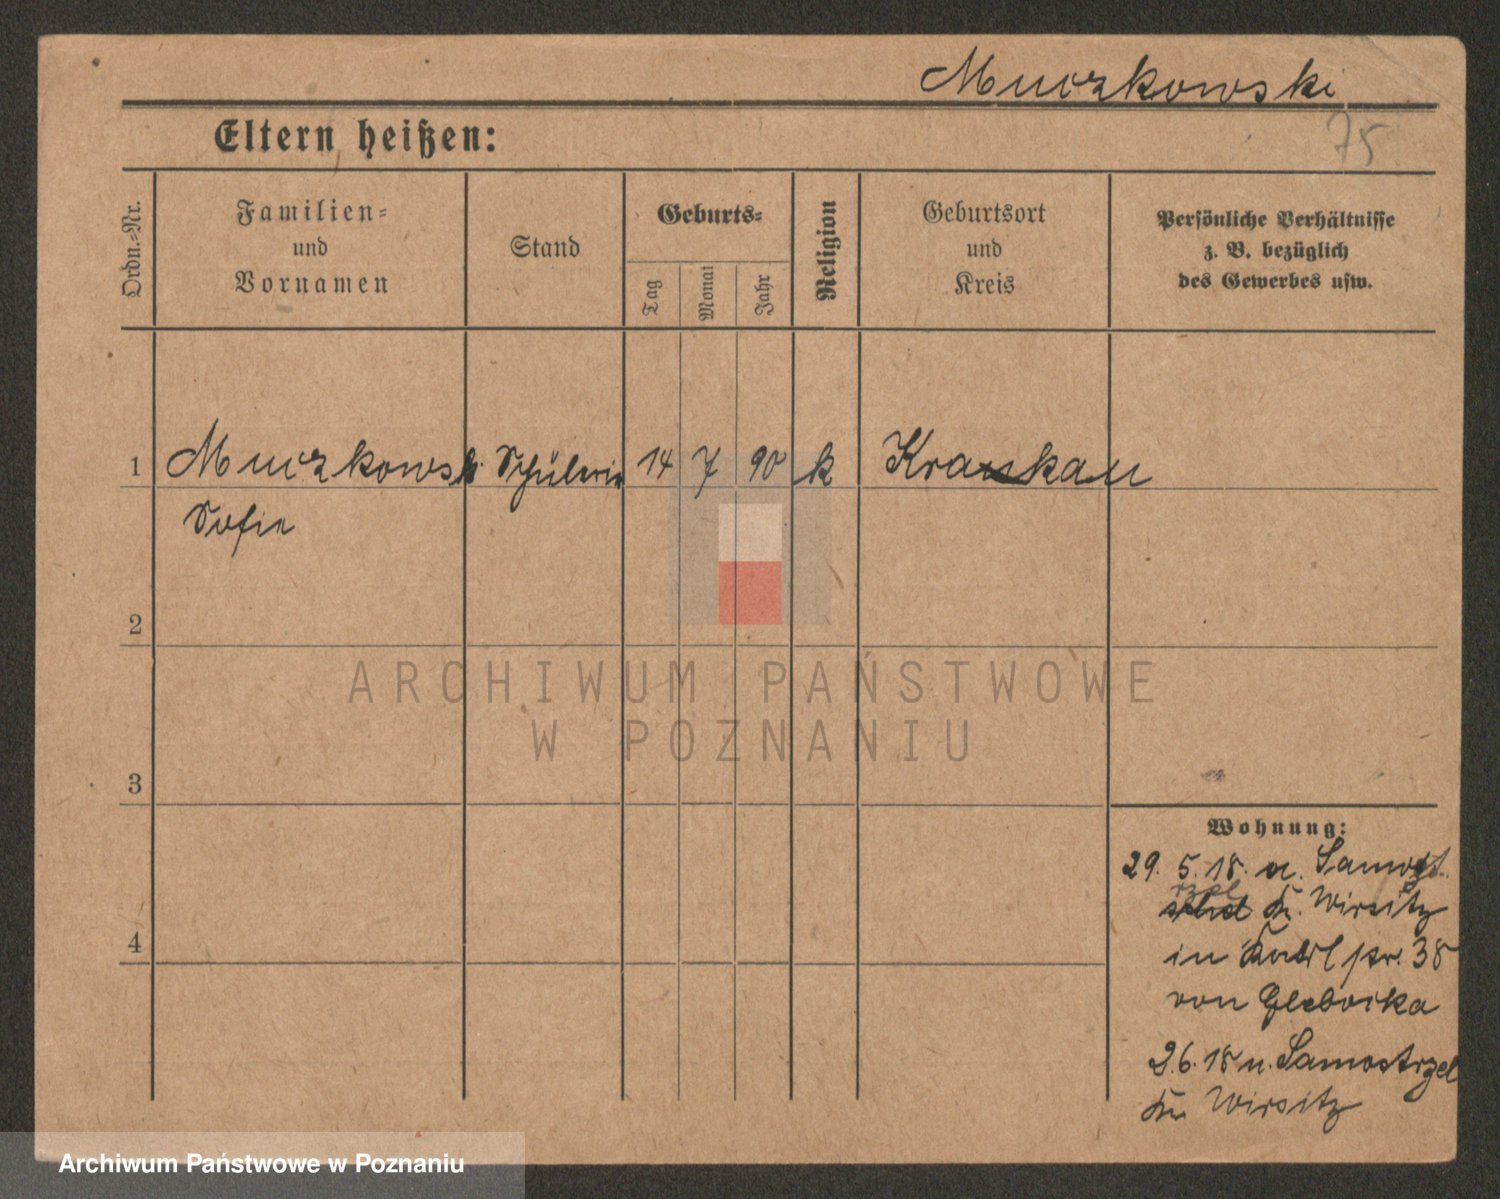 Muczkowski
75
Eltern heißen:
Ordn.-Nr.
Familien-
und
Vornamen
Stand
Geburts-
Tag
Monat
Jahr
Religion
Geburtsort
und
Kreis
Persönliche Verhältnisse
z. B. bezüglich
des Gewerbes usw.
1 Muczkowski Schülerin 14 7 90 k Krankau
Sofie
2
3
4
Wohnung:
29. 5. 18. a. Samost
rzel Kr. Wirsitz
in
von
2.6.18 n. Samostrzel
Kr. Wirsitz
ARCHIWUM PAŃSTWOWE
W POZNANIU
Archiwum Państwowe w Poznaniu